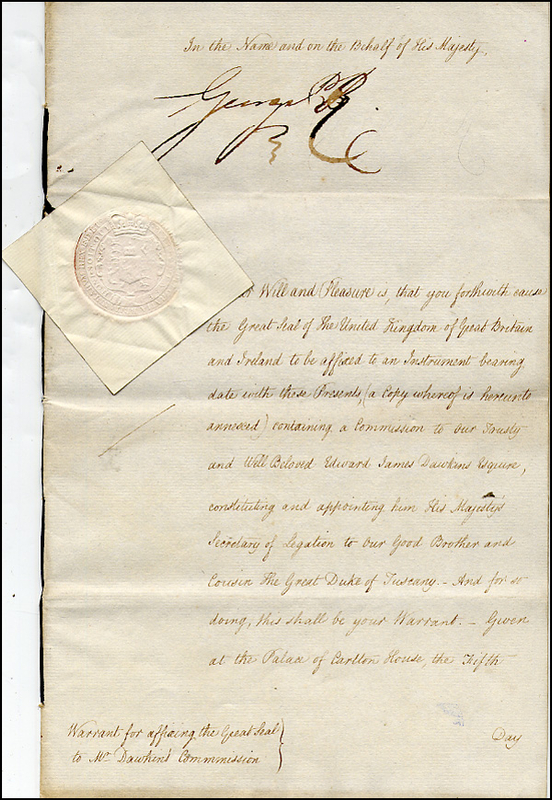 In the Name and on the Behalf of His Majesty,
George P R
Will and Pleasure is, that you forthwith cause
the Great Seal of The United Kingdom of Great Britain
and Ireland to be affixed to an Instrument bearing
date with these Presents, (a Copy whereof is hereunto
annexed) containing a Commission to Our Trusty
and Well Beloved Edward James Dawkins Esquire,
constituting and appointing him His Majesty's
Secretary of Legation to Our Good Brother and
Cousin The Great Duke of Tuscany. - And for so
doing, this shall be your Warrant. - Given
at the Palace of Carlton House, the Fifth
Day
Warrant for affixing the Great Seal
to Mr Dawkins's Commission